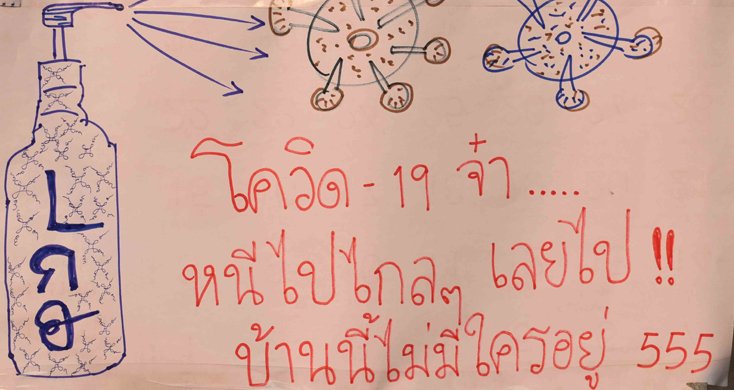 โควิด - 19 จ๋า .....
หนีไปไกลๆ เลยไป !!
บ้านนี้ไม่มีใครอยู่ 555